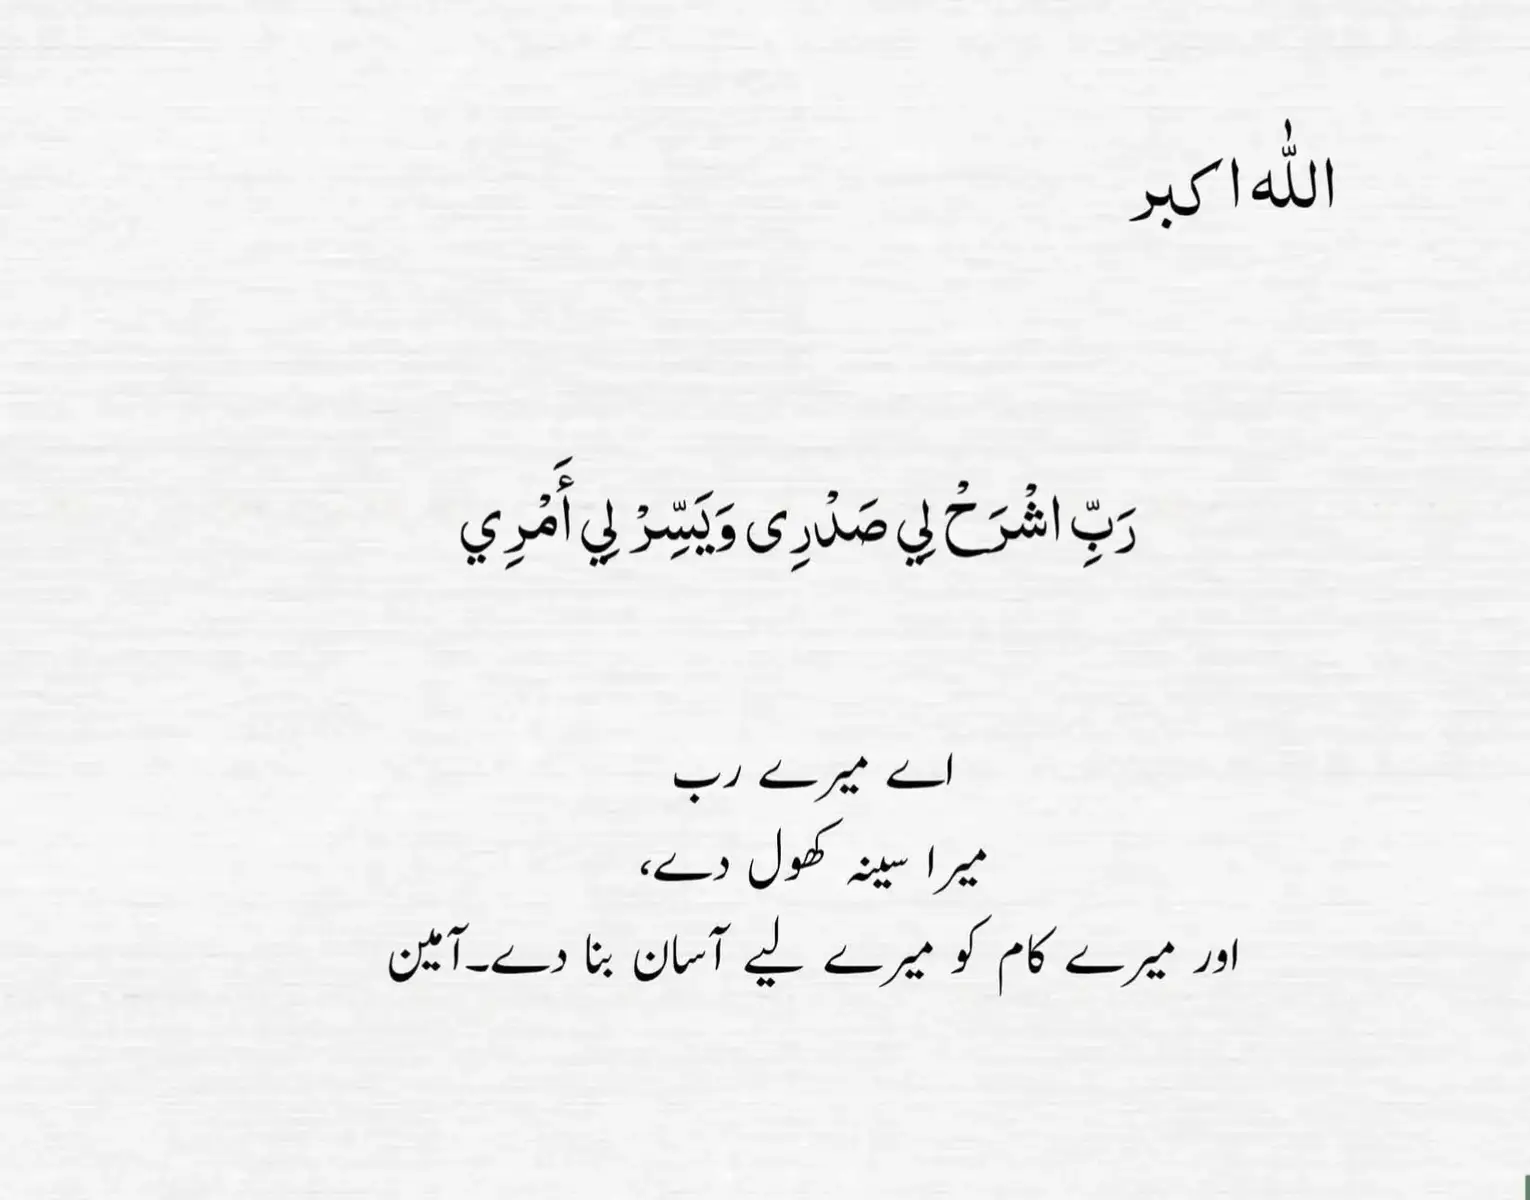 اللّٰہ اکبر
رَبِّ اشْرَحْ لِي صَدْرِی وَيَسِّرْ لِي أَمْرِي
اے میرے رب
میرا سینہ کھول دے،
اور میرے کام کو میرے لیے آسان بنا دے۔آمین